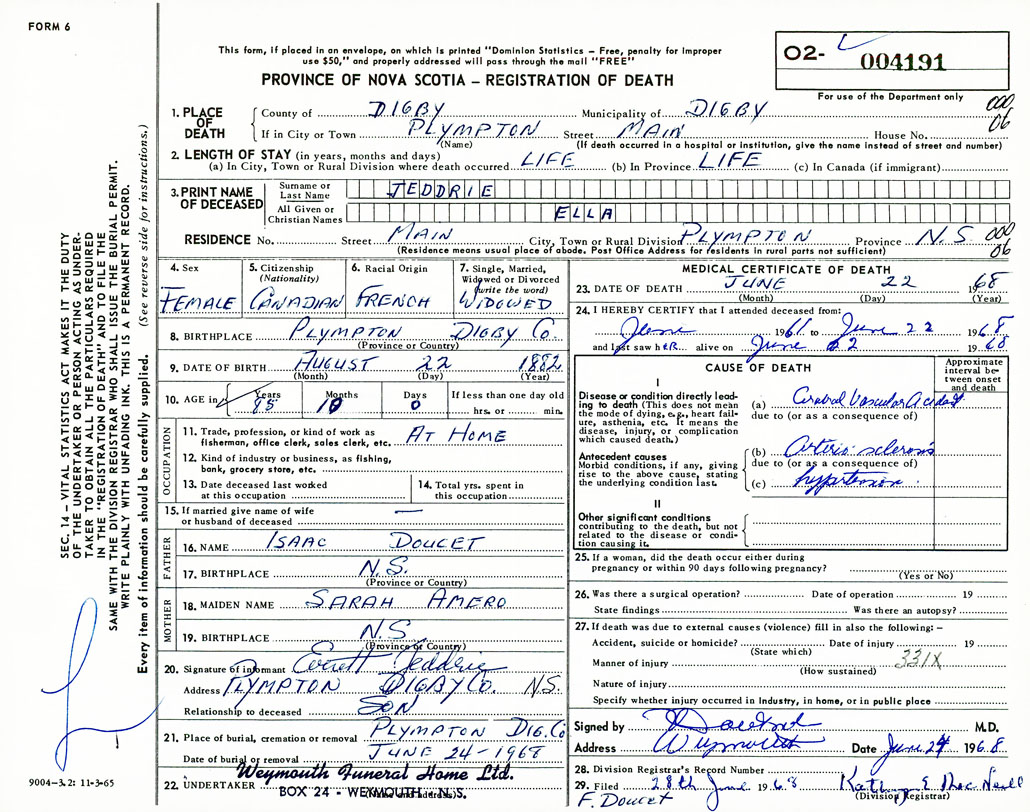 FORM 6
This form, if placed in an envelope, on which is printed "Dominion Statistics – Free, penalty for improper
use $50," and properly addressed will pass through the mail "FREE"
PROVINCE OF NOVA SCOTIA – REGISTRATION OF DEATH
O2- 004191
For use of the Department only
000
06
1. PLACE OF DEATH
County of DIGBY Municipality of DIGBY
If in City or Town PLYMPTON Street MAIN House No.
(Name) (If death occurred in a hospital or institution, give the name instead of street and number)
2. LENGTH OF STAY (in years, months and days)
(a) In City, Town or Rural Division where death occurred LIFE (b) In Province LIFE (c) In Canada (if immigrant)
3. PRINT NAME OF DECEASED
Surname or Last Name JEDDRIE
All Given or Christian Names ELLA
RESIDENCE No. Street MAIN City, Town or Rural Division PLYMPTON Province N.S. 000
06
(Residence means usual place of abode. Post Office Address for residents in rural parts not sufficient)
4. Sex FEMALE
5. Citizenship (Nationality) CANADIAN
6. Racial Origin FRENCH
7. Single, Married, Widowed or Divorced (write the word) WIDOWED
8. BIRTHPLACE PLYMPTON DIGBY Co.
(Province or Country)
9. DATE OF BIRTH AUGUST 22 1882
(Month) (Day) (Year)
10. AGE in Years 85 Months 10 Days 0 If less than one day old
hrs. or min.
OCCUPATION
11. Trade, profession, or kind of work as
fisherman, office clerk, sales clerk, etc. AT HOME
12. Kind of industry or business, as fishing,
bank, grocery store, etc.
13. Date deceased last worked
at this occupation
14. Total yrs. spent in
this occupation
15. If married give name of wife
or husband of deceased —
FATHER
16. NAME ISAAC DOUCET
17. BIRTHPLACE N.S.
(Province or Country)
MOTHER
18. MAIDEN NAME SARAH AMERO
19. BIRTHPLACE N.S.
(Province or Country)
20. Signature of informant Everett Jeddrie
Address PLYMPTON DIGBY Co. N.S.
Relationship to deceased SON
21. Place of burial, cremation or removal PLYMPTON DIG. Co
Date of burial or removal JUNE 24-1968
22. UNDERTAKER Weymouth Funeral Home Ltd.
(Name and address)
BOX 24 - WEYMOUTH, N.S.
MEDICAL CERTIFICATE OF DEATH
23. DATE OF DEATH JUNE 22 1968
(Month) (Day) (Year)
24. I HEREBY CERTIFY that I attended deceased from:
June 1961 to June 22 1968
and last saw hER alive on June 22 1968
CAUSE OF DEATH
Approximate interval between onset and death
I
Disease or condition directly leading to death (This does not mean the mode of dying, e.g., heart failure, asthenia, etc. It means the disease, injury, or complication which caused death.)
(a) Cerebral Vascular Accident
due to (or as a consequence of)
Antecedent causes
Morbid conditions, if any, giving rise to the above cause, stating the underlying condition last.
(b) Arterio sclerosis
due to (or as a consequence of)
(c) hypertension
II
Other significant conditions
contributing to the death, but not related to the disease or condition causing it.
25. If a woman, did the death occur either during
pregnancy or within 90 days following pregnancy?
(Yes or No)
26. Was there a surgical operation? Date of operation 19
State findings Was there an autopsy?
27. If death was due to external causes (violence) fill in also the following: –
Accident, suicide or homicide? Date of injury 19
(State which)
Manner of injury 331X
(How sustained)
Nature of injury
Specify whether injury occurred in Industry, in home, or in public place
Signed by M.D.
Address Weymouth Date June 24 1968
28. Division Registrar's Record Number
29. Filed 28th June 1968
(Division Registrar)
F. Doucet
SEC. 14 – VITAL STATISTICS ACT MAKES IT THE DUTY
OF THE UNDERTAKER OR PERSON ACTING AS UNDER-
TAKER TO OBTAIN ALL THE PARTICULARS REQUIRED
IN THE "REGISTRATION OF DEATH" AND TO FILE THE
SAME WITH THE DIVISION REGISTRAR WHO SHALL ISSUE THE BURIAL PERMIT.
WRITE PLAINLY WITH UNFADING INK. THIS IS A PERMANENT RECORD.
Every item of information should be carefully supplied. (See reverse side for instructions.)
9004-3.2: 11-3-65